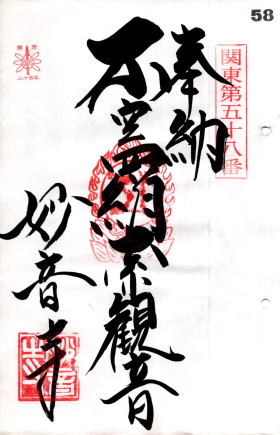 58
関東第五十八番
奉納
不空羂索観音
妙音寺